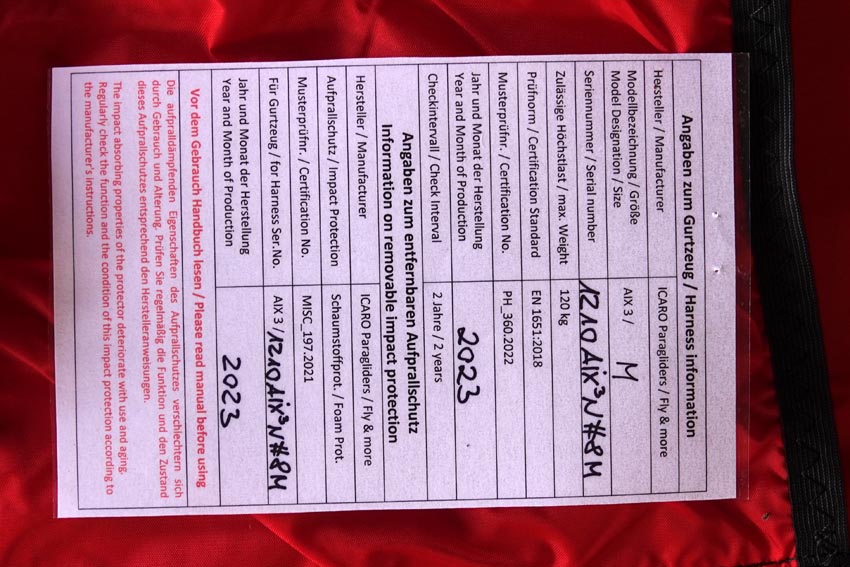 Angaben zum Gurtzeug / Harness information
Hersteller / Manufacturer
ICARO Paragliders / Fly & more
Modellbezeichnung / Größe
Model Designation / Size
AIX 3 / M
Seriennummer / Serial number
1210AiX³N#8M
Zulässige Höchstlast / max. Weight
120 kg
Prüfnorm / Certification Standard
EN 1651:2018
Musterprüfnr. / Certification No.
PH_360.2022
Jahr und Monat der Herstellung
Year and Month of Production
2023
Checkintervall / Check Interval
2 Jahre / 2 years
Angaben zum entfernbaren Aufprallschutz
Information on removable impact protection
Hersteller / Manufacturer
ICARO Paragliders / Fly & more
Aufprallschutz / Impact Protection
Schaumstoffprot. / Foam Prot.
Musterprüfnr. / Certification No.
MISC_197.2021
Für Gurtzeug / for Harness Ser.No.
AIX 3 / 1210AiX³N#8M
Jahr und Monat der Herstellung
Year and Month of Production
2023
Vor dem Gebrauch Handbuch lesen / Please read manual before using
Die aufpralldämpfenden Eigenschaften des Aufprallschutzes verschlechtern sich
durch Gebrauch und Alterung. Prüfen Sie regelmäßig die Funktion und den Zustand
dieses Aufprallschutzes entsprechend den Herstelleranweisungen.
The impact absorbing properties of the protector deteriorate with use and aging.
Regularly check the function and the condition of this impact protection according to
the manufacturer's instructions.